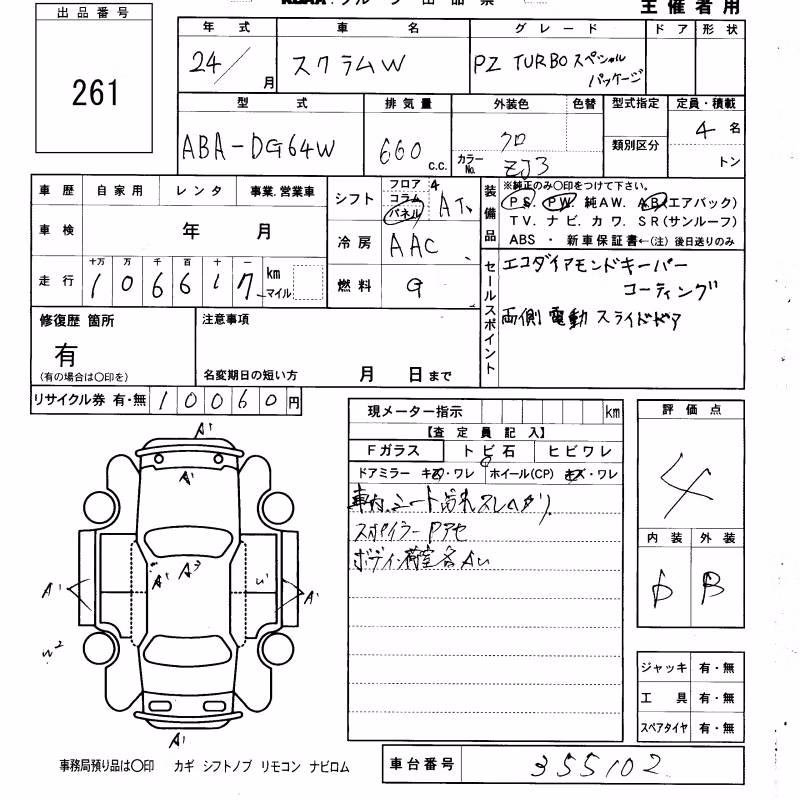 主催者用
出品番号
261
年式 車名 グレード ドア 形状
24/ 月 スクラムW PZ TURBO スペシャル
パッケージ
型式 排気量 外装色 色替 型式指定 定員・積載
ABA-DG64W 660 c.c. クロ 類別区分 4 名
カラーNo. ZJ3 トン
車歴 自家用 レンタ 事業.営業車
車検 年 月
走行 十万 万 千 百 十 一
106617 km マイル
シフト フロア コラム パネル 4 AT
冷房 AAC
燃料 G
装備品 ※純正のみ○印をつけて下さい。
PS. PW. 純AW. AB(エアバック)
TV. ナビ. カワ. SR(サンルーフ)
ABS ・ 新車保証書←(注) 後日送りのみ
セールスポイント
エコダイアモンドキーパー
コーティング
両側電動スライドドア
修復歴 箇所
有
(有の場合は○印を)
注意事項
名変期日の短い方 月 日まで
リサイクル券 有・無 10060 円
現メーター指示 km
【査定員記入】
Fガラス トビ石 ヒビワレ
ドアミラー キズ・ワレ ホイール(CP) キズ・ワレ
車内、シート汚れスレヘタリ
スポイラーPアセ
ボディ、荷室各AU
評価点
4
内装 外装
D B
A1
A1
A1 A3
A1 U1 A1
W2
A1
ジャッキ 有・無
工具 有・無
スペアタイヤ 有・無
事務局預り品は○印 カギ シフトノブ リモコン ナビロム
車台番号 355102